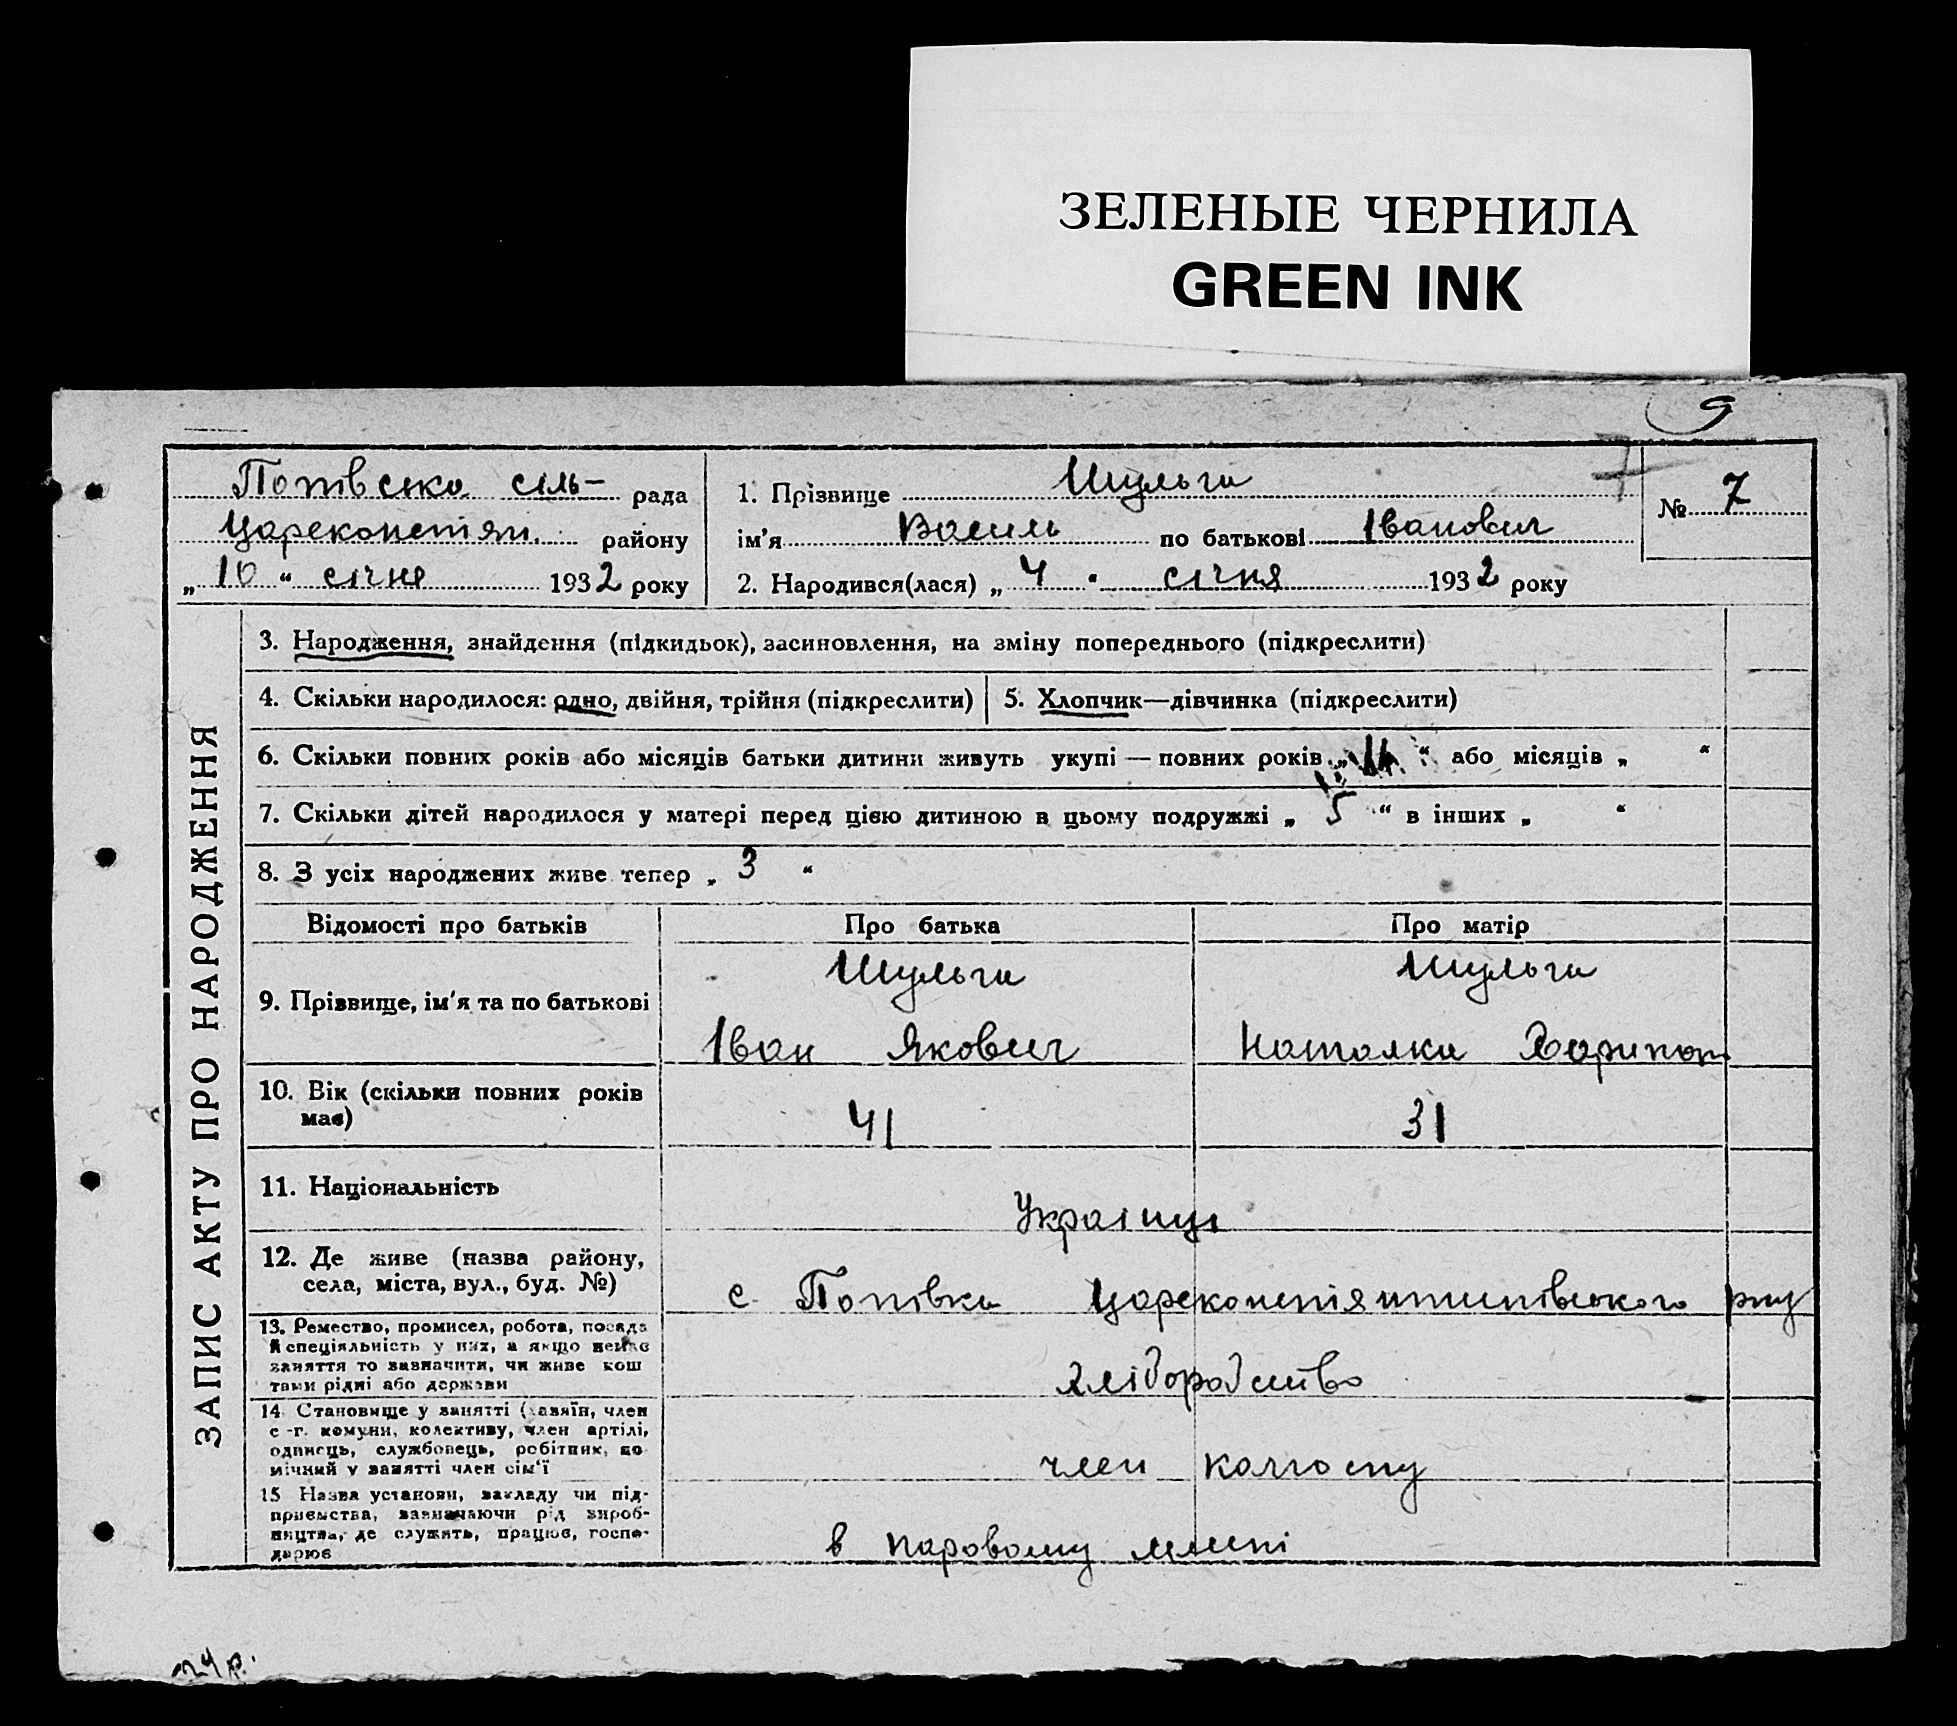 ЗЕЛЕНЫЕ ЧЕРНИЛА
GREEN INK
9
7
Попівська сіль- рада
Цареконстян. району
„ 10 “ січня 1932 року
1. Прізвище Шульга
ім'я Василь по батькові Іванович
2. Народився(лася) „ 4 " січня 1932 року
№ 7
ЗАПИС АКТУ ПРО НАРОДЖЕННЯ
3. Народження, знайдення (підкидьок), засиновлення, на зміну попереднього (підкреслити)
4. Скільки народилося: одно, двійня, трійня (підкреслити)
5. Хлопчик—дівчинка (підкреслити)
6. Скільки повних років або місяців батьки дитини живуть укупі — повних років „ “ або місяців „ “
7. Скільки дітей народилося у матері перед цією дитиною в цьому подружжі „ 5 “ в інших „ “
8. З усіх народжених живе тепер „ 3 “
Відомості про батьків Про батька Про матір
9. Прізвище, ім'я та по батькові
Шульга
Іван Якович
Шульга
Наталка
10. Вік (скільки повних років
має)
41 31
11. Національність
Українці
12. Де живе (назва району,
села, міста, вул., буд. №)
с. Попівка Цареконстянтинівського рну
13. Ремество, промисел, робота, посада
й спеціяльність у них, а якщо немає
заняття то зазначити, чи живе кош
тами рідні або держави
хліборобство
14. Становище у занятті (хазяїн, член
с.-г. комуни, колективу, член артілі,
одинець, службовець, робітник, по
мічний у занятті член сім'ї
член колгоспу
15 Назва установи, закладу чи під-
приємства, зазначаючи рід вироб-
ництва, де служить, працює, госпо-
дарює
в паровому млині
24 р.